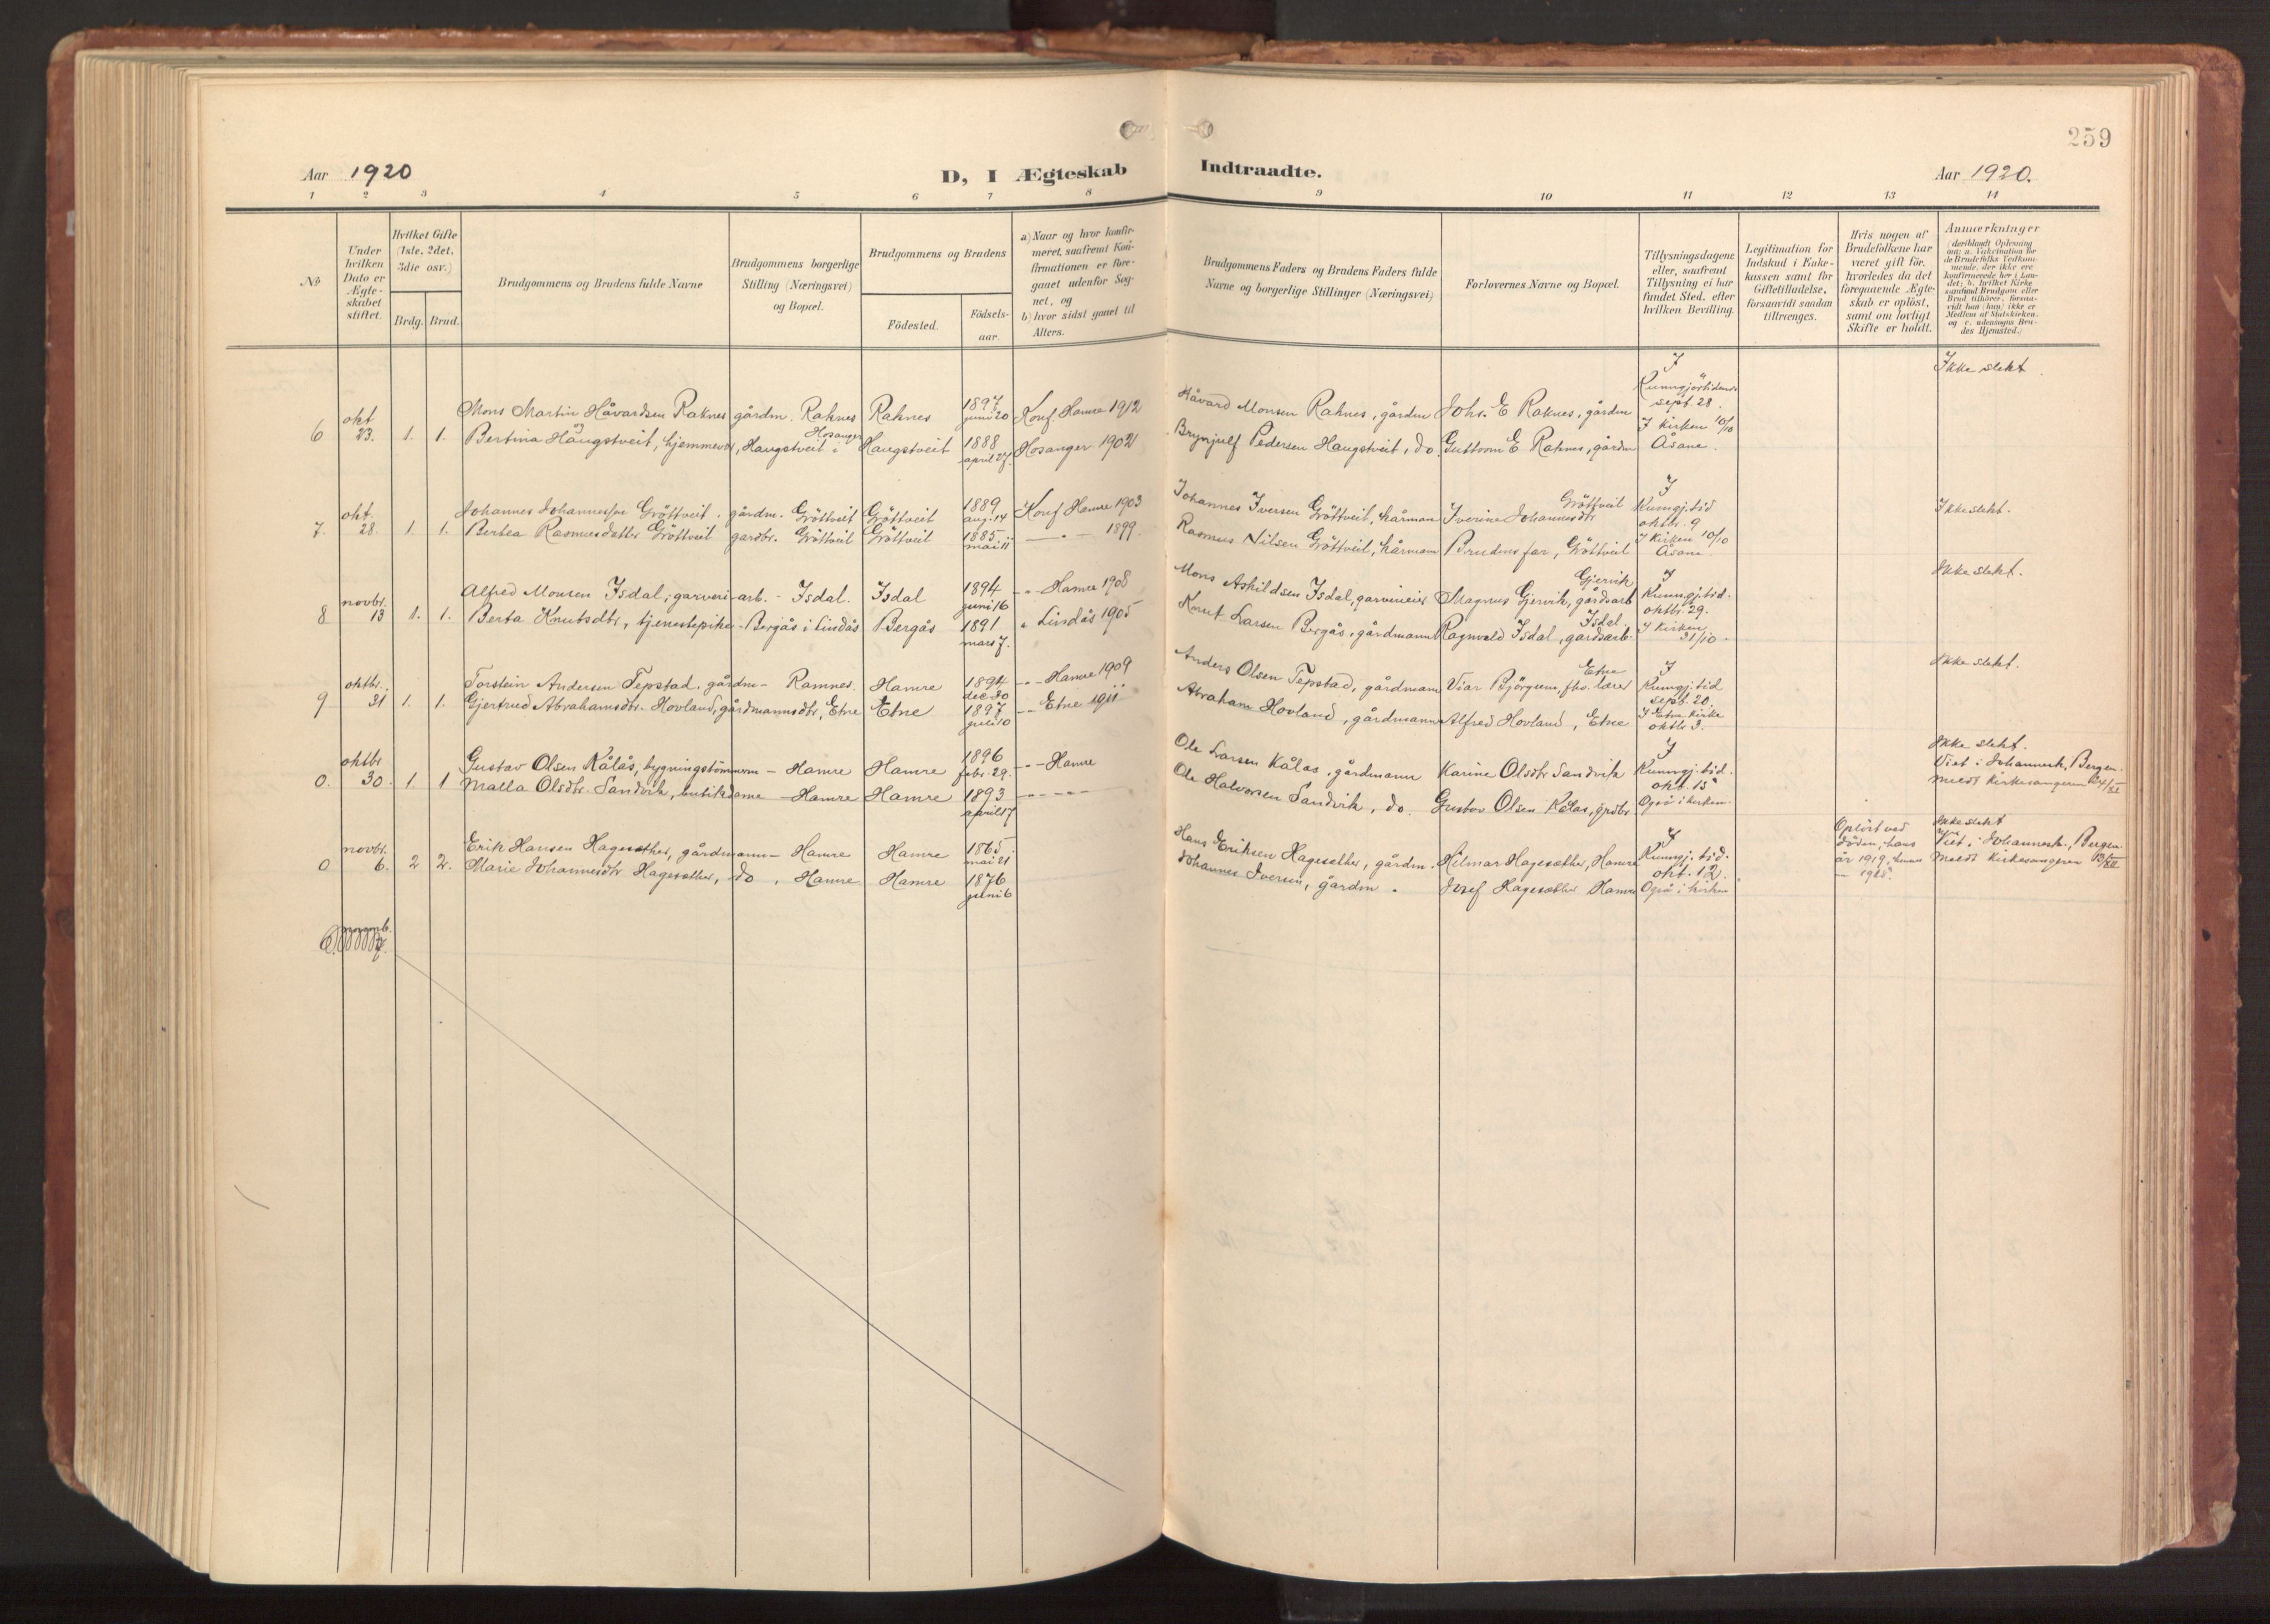 259
Aar 1920
D, I Ægteskab
Indtraadte.
Aar 1920.
1 2 3 4 5 6 7 8 9 10 11 12 13 14
No
Under hvilken Dato er Ægteskabet stiftet.
Hvilket Gifte (1ste, 2det, 3die osv.)
Brdg. Brud.
Brudgommens og Brudens fulde Navne
Brudgommens borgerlige Stilling (Næringsvei) og Bopæl.
Brudgommens og Brudens
Födested.
Födselsaar.
a) Naar og hvor konfirmeret, saafremt Konfirmationen er foregaaet udenfor Sognet, og
b) hvor sidst gaaet til Alters.
Brudgommens Faders og Brudens Faders fulde Navne og borgerlige Stillinger (Næringsvei)
Forlovernes Navne og Bopæl.
Tillysningsdagene eller, saafremt Tillysning ei har fundet Sted, efter hvilken Bevilling.
Legitimation for Indskud i Enkekassen samt for Giftetilladelse, forsaavidt saadan tiltrænges.
Hvis nogen af Brudefolkene har været gift för, hvorledes da det foregaaende Ægteskab er oplöst, samt om lovligt Skifte er holdt.
Anmærkninger
(deriblandt Oplysning om: a. Vakcination for de Brudefolks Vedkommende, der ikke ere konfirmerede her i Landet; b. hvilket Kirkesamfund Brudgom eller Brud tilhörer, forsaavidt han (hun) ikke er Medlem af Statskirken, og c. udensogns Brudes Hjemsted.)
6 okt 23. 1. 1. Mons Martin Håvardsen Raknes gårdm. Raknes Raknes 1897 juni 20 Konf. Hamre 1912 Håvard Monsen Raknes, gårdm Johs. E Raknes, gårdm I Kunngjörtidende sept. 28. Ikke slekt.
Bertina Haugstveit, hjemmevær, Haugstveit i Hosanger Haugstveit 1888 april 27. Hosanger 1902 Brynjulf Pedersen Haugstveit, do Guttorm E Raknes, gårdm I kirken 10/10 Åsane.
7. okt. 28. 1. 1. Johannes Johannessen Gröttveit, gårdm. Gröttveit Gröttveit 1889 aug. 14 Konf Hamre 1903 Johannes Iversen Gröttveit, kårmann Iverine Johannesdtr Gröttveit I Kunngj. tid oktbr. 9 Ikke slekt.
Bertea Rasmusdatter Gröttveit gardbr. Gröttveit Gröttveit 1885 mai 11 — " — 1899. Rasmus Nilsen Gröttveit, kårmann Brudens far, Gröttveit I kirken 10/10 Åsane.
8 novbr. 13 1. 1. Alfred Monsen Isdal, garveriarb. - Isdal. Isdal 1894 juni 16 - " - Hamre 1908 Mons Askildsen Isdal, garverieier Magnus Gjervik, gårdsarb Gjervik I Kunngj. tid. oktbr. 29. Ikke slekt.
Berta Knutsdtr, tjenestepike - Bergås i Lindås Bergås 1891 mars 7. " Lindås 1905 Knut Larsen Bergås, gårdmann Ragnvald Isdal, gardsarb. Isdal. I kirken 31/10.
9 oktbr. 31 1. 1. Torstein Andersen Tepstad, gårdm - Ramnes. Hamre 1894 dec 30 - " - Hamre 1909 Anders Olsen Tepstad, gårdmann Viar Björgum, fhv. lærer Etne I Kunngj. tid sept. 20. Ikke slekt.
Gjertrud Abrahamsdtr. Hovland, gårdmannsdtr, Etne Etne 1897 juli 10 - - Etne 1911 Abraham Hovland, gårdmann Alfred Hovland, Etne I Etne kirke oktbr 3.
0. oktbr 30. 1. 1 Gustav Olsen Kålås, bygningstömmerm - Hamre Hamre 1896 febr. 29. - " - Hamre Ole Larsen Kålås, gårdmann Karine Olsdtr Sandvik I Kunngj. tid. okt. 15 Ikke slekt.
Malla Olsdtr. Sandvik, butikdame - Hamre Hamre 1893 april 17 Ole Halvorsen Sandvik, do. Gustav Olsen Kålås, grdbr Også i kirken. Viet i Johannesk., Bergen. Meldt kirkesangeren 24/XI
0 novbr. 6. 2 2. Erik Hansen Hagesæther, gårdmann - Hamre Hamre 1865 mai 21 Hans Eriksen Hagesether, gårdm. Hilmar Hagesæther, Hamre I Kunngj. tid. okt. 12. Oplöst ved döden, hans år 1919, hennes — 1918. Ikke slekt
Marie Johannesdtr Hagesæther, do, Hamre Hamre 1876 juni 6 Johannes Iversen, gårdm. Josef Hagesæther Hamre Også i kirken Viet i Johannesk., Bergen. Meldt kirkesangeren
novemb.